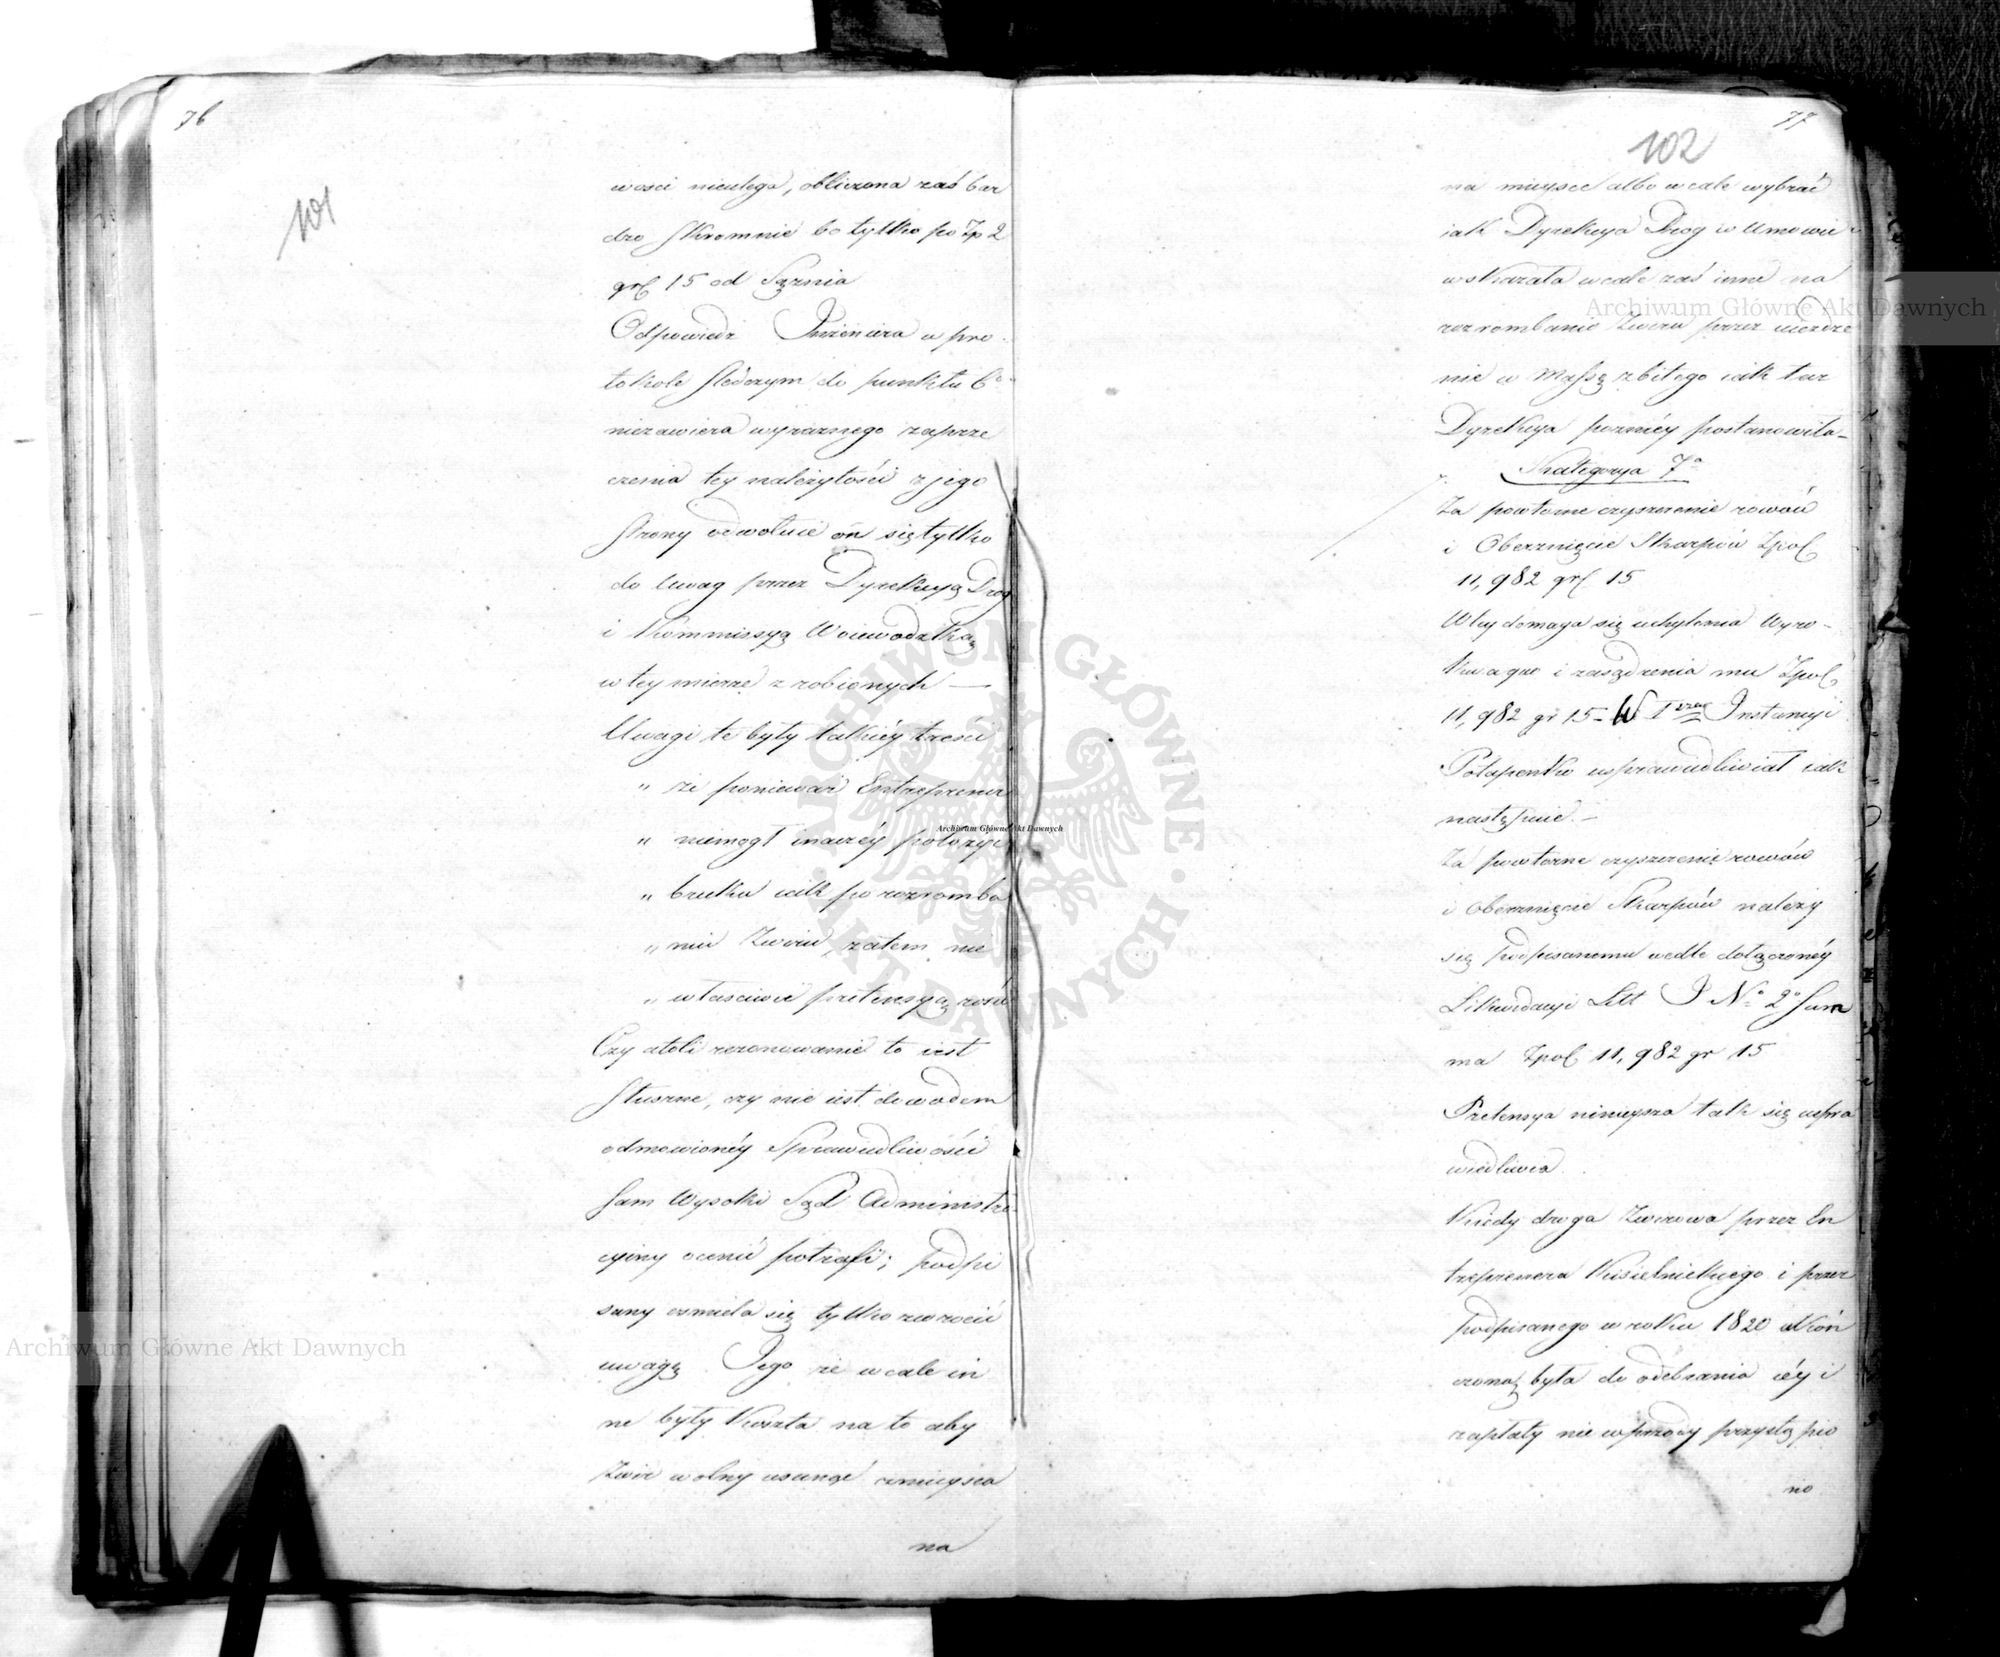 76
101
wości nieulega, obliczona zaś bar
dzo skromnie bo tylko po Zp 2
gr 15 od Sążnia
Odpowiedź Inżeniera w pro-
tokole śledczym do punktu 6º
niezawiera wyraznego zaprze
czenia tey należytości z jego
strony odwołuie on się tylko
do uwag przez Dyrekcyą Drog
i Kommissyą Woiewodzką
w tey mierze zrobionych —
Uwagi te były takiéy treści
„ że ponieważ Entreprener
„ niemogł inaczéy położyć
„ bruku iak po rozromba
„ niu Zwiru, zatem nie
„ własciwie pretensyą rości
Czy atoli rezonowanie to iest
słuszne, czy nie iest dowodem
odmowionéy Sprawiedliwości
sam Wysoki Sąd Administra
cyiny ocenić potrafi; podpi
sany osmiela się tylko zwrócić
uwagę Jego że wcale in
ne były koszta na to aby
Zwir wolny usunąć z mieysca
na
77
102
na mieysce albo wcale wybrać
iak Dyrekcya Drog w Umowie
wskazała wcale zaś inne na
rozrombanie Zwiru przez uieżdże
nie w Massę zbitego iak taż
Dyrekcya poźniéy postanowiła-
Kategorya 7ª
Za powtorne czyszczenie rowów
i Oberznięcie Skarpów Zpol
11,982 gr 15
W tey domaga się uchylenia Wyro-
ku a quo i zasądzenia mu Zpol
11,982 gr 15 - W Iszey Instancyi
Potapenko usprawiedliwiał iak
następuie. —
Za powtorne czyszczenie rowów
i Oberznięcie Skarpów należy
się podpisanemu wedle dołączonéy
Likwidacyi Litt J Nº 2º Sum
ma Zpol 11,982 gr 15
Pretensya ninieysza tak się uspra
wiedliwia.
Kiedy droga Zwirowa przez En
treprenera Kisielnickiego i przez
podpisanego w roku 1820 ukoń
czoną była do odebrania iéy i
zapłaty nie wprzódy przystąpio
no
Archiwum Główne Akt Dawnych
Archiwum Główne Akt Dawnych
Archiwum Główne Akt Dawnych
ARCHIWUM GŁÓWNE • AKT DAWNYCH •